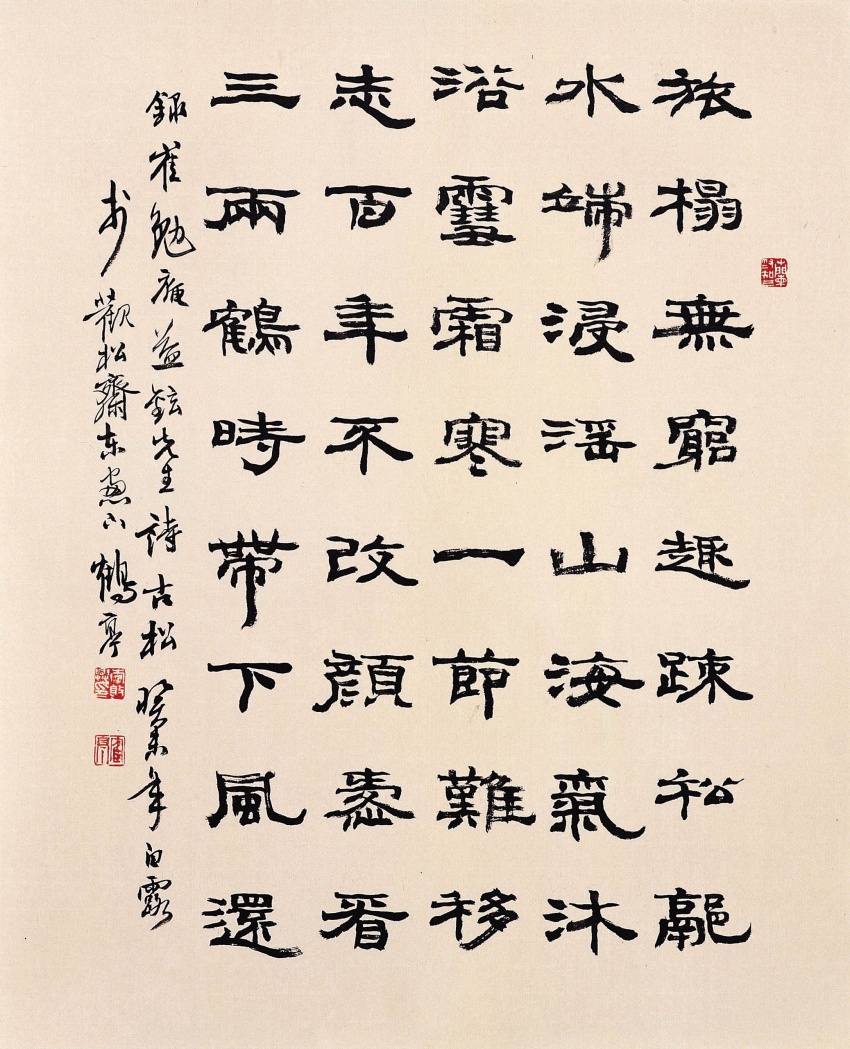 旅榻無窮趣疎松
水端浸滛山海氣沐
浴雪霜寒一節難移
志百年不改顔看
三兩鶴時帶下風還
錄崔勉庵益鉉先生詩古松 癸未年白露
於觀松齋東窓下 鶴亭